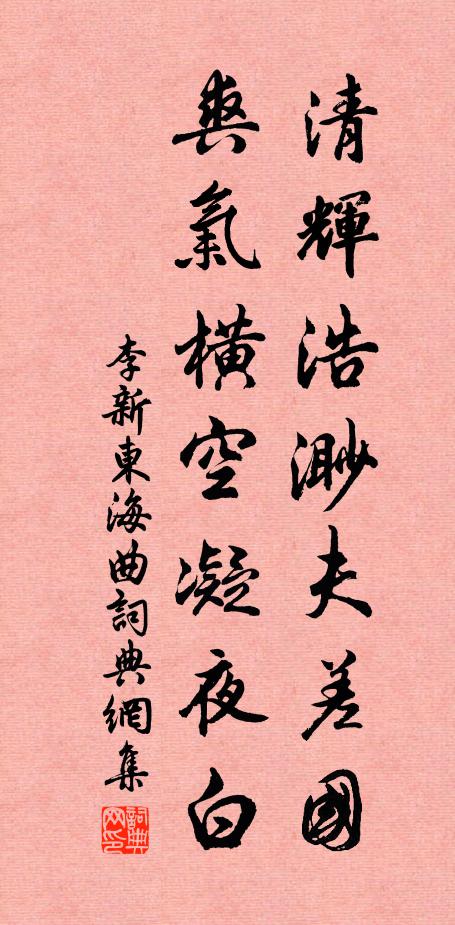 清輝浩渺夫差國
爽氣橫空凝夜白
李新東海曲詞典網集
詞典网印